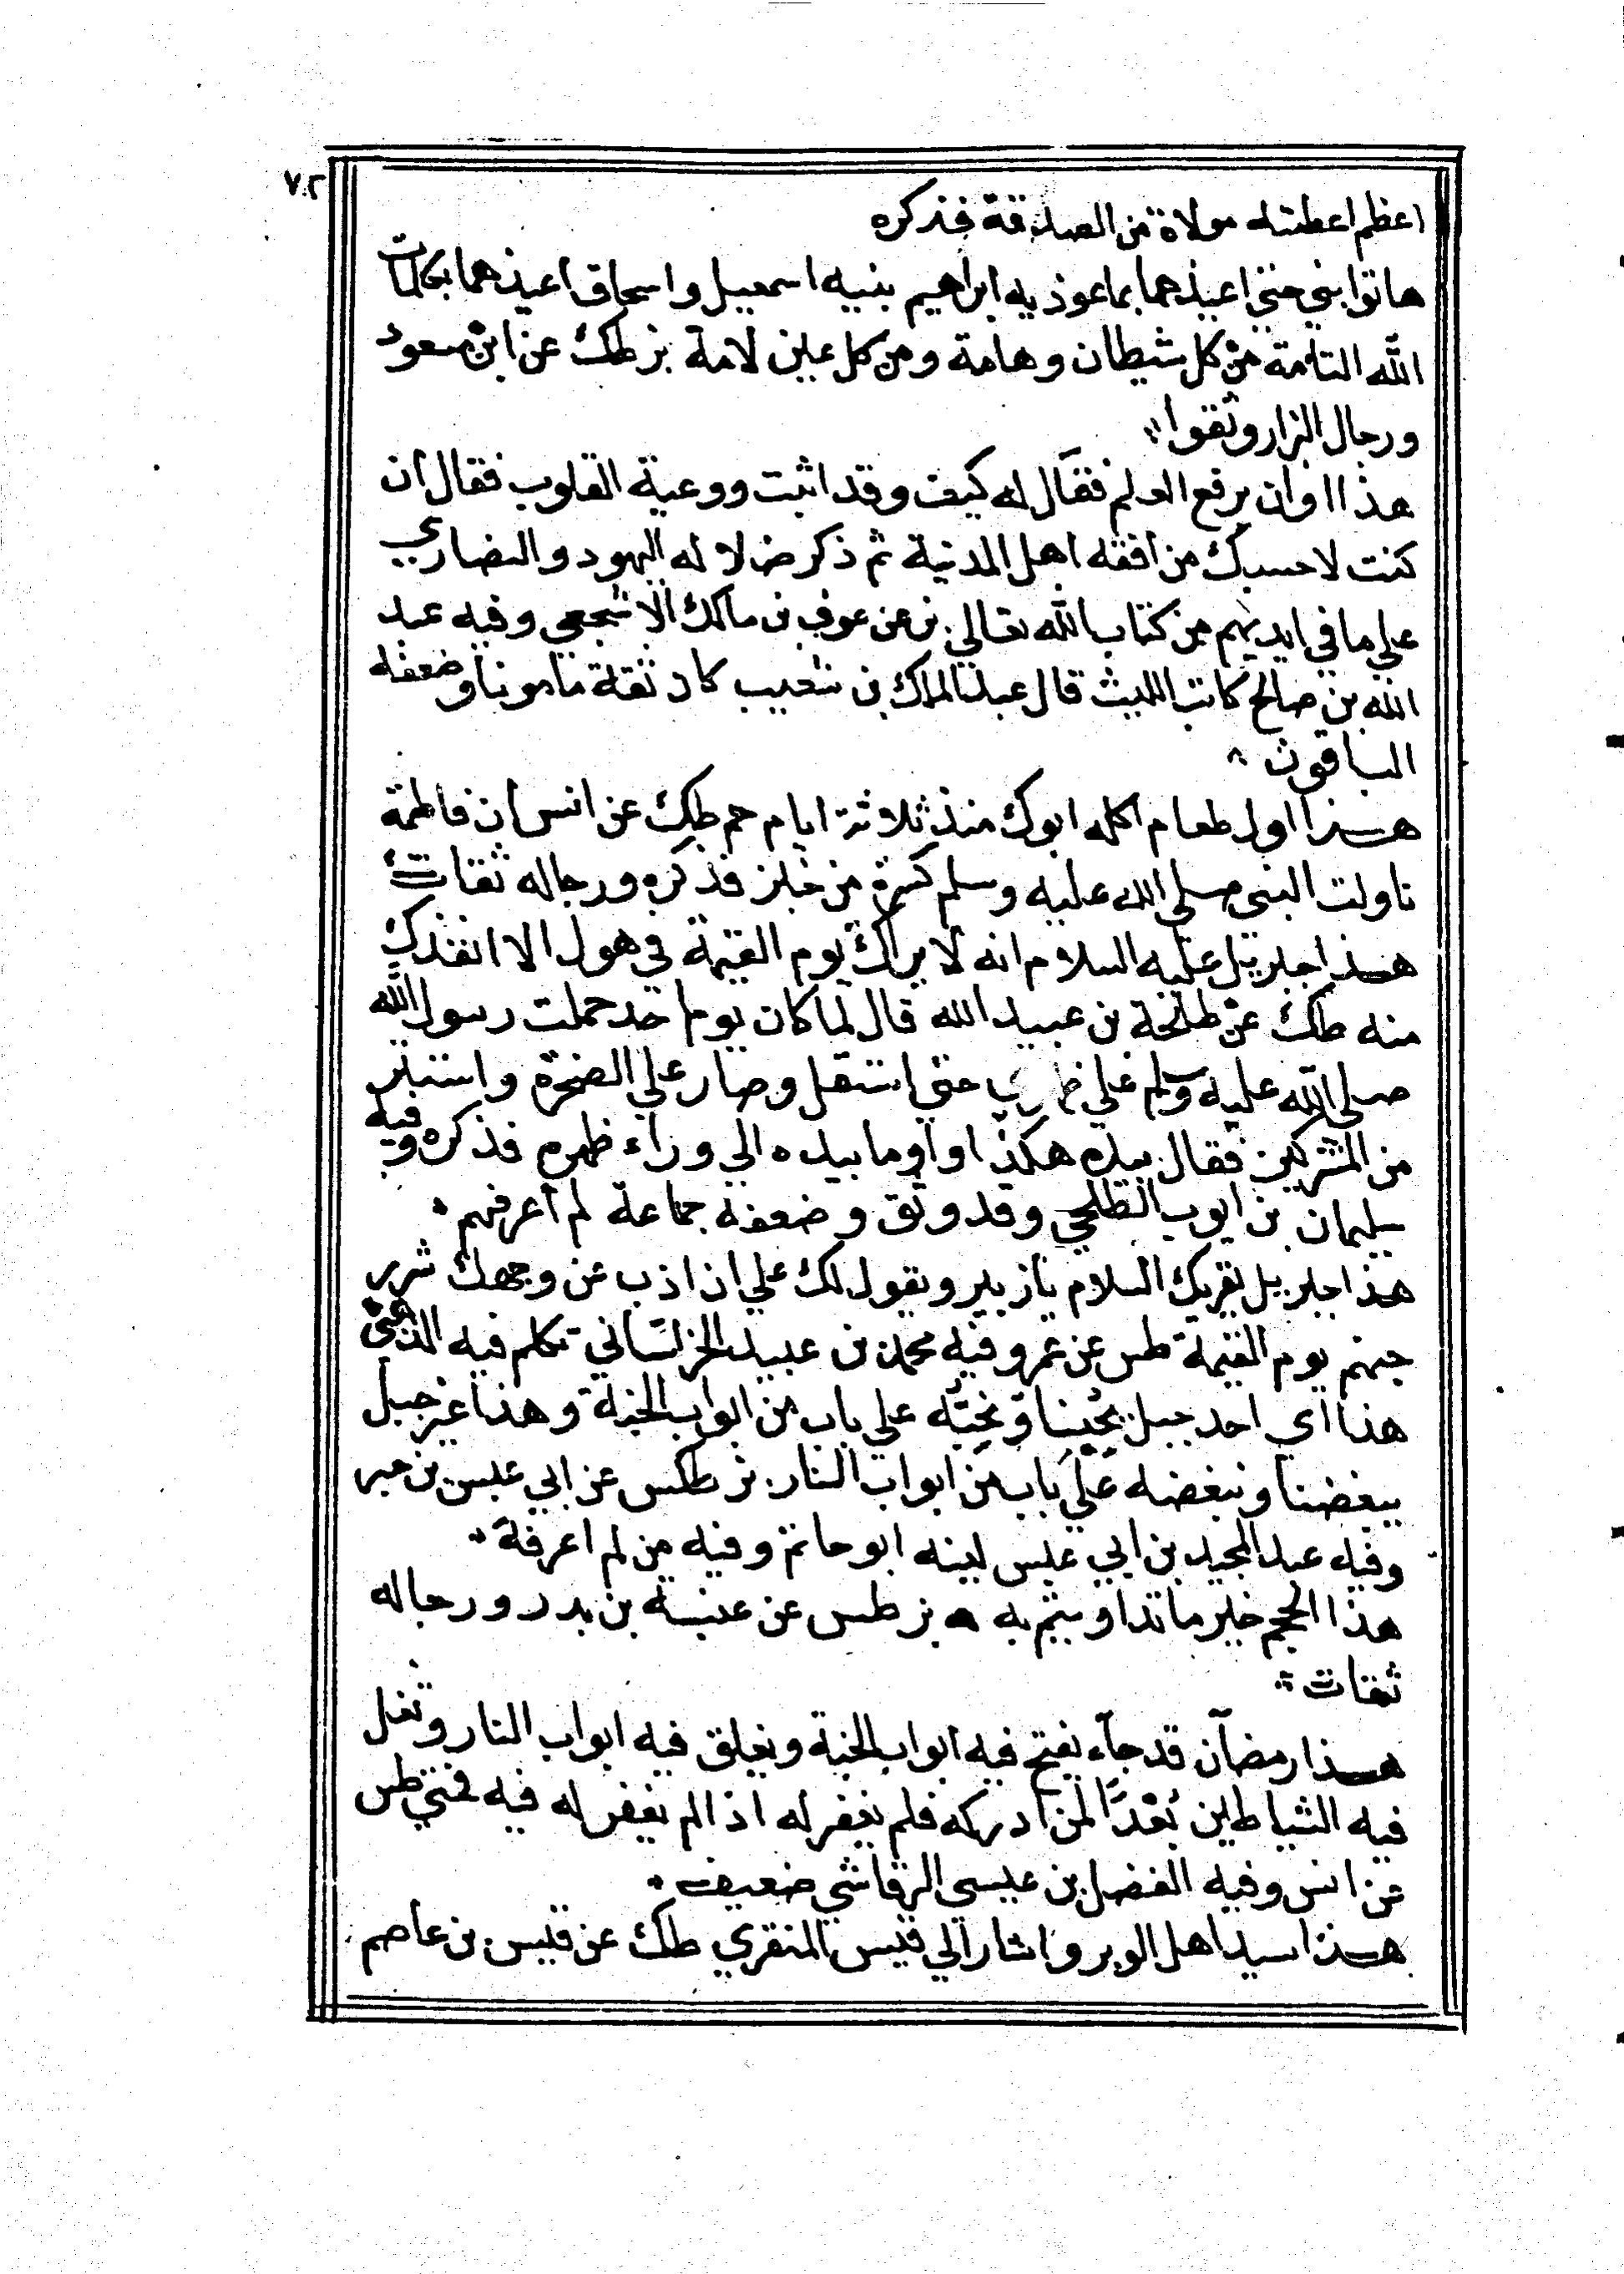 ٧٠٢
اعظم اعطته مولاة من الصدقة فذكره
هاتوا ابني حتي اعيذهما بما عوذ به ابراهيم بنيه اسمعيل واسحاق اعيذهما بكلمات
الله التامة من كل شيطان وهامة ومن كل عين لامة بز طك عن ابن مسعود
ورجال البزار وثقوا
هذا اوان يرفع العلم فقال له كيف وقد اثبت ووعية القلوب فقال ان
كنت لاحسبك من افقه اهل المدنية ثم ذكر ضلاله اليهود والنصاري
علي ما في ايديهم من كتاب الله تعالي بز عن عوف بن مالك الاشجعي وفيه عبد
الله بن صالح كاتب الليث قال عبد الملك بن شعيب كان ثقة مامونا وضعفه
الباقون
هذا اول طعام اكله ابوك منذ ثلاثة ايام حم طك عن انس ان فاطمة
ناولت النبي صلي الله عليه وسلم كسرة من خبز فذكره ورجاله ثقات
هذا جبريل عليه السلام انه لا يراك يوم القيمة في هول الا انقذك
منه طك عن طلحة بن عبيد الله قال لما كان يوم احد حملت رسول الله
صلي الله عليه وسلم علي ظهري حتي استقل وصار علي الصخرة واستتر
من المشركين فقال بيده هكذا واوما بيده الي وراء ظهره فذكره وفيه
سليمان بن ايوب الطلحي وقد وثق وضعفه جماعة لم اعرفهم
هذا جبريل يقريك السلام يا زبير ويقول لك علي ان اذب عن وجهك شرر
جهنم يوم القيمة طس عن عمر وفيه محمد بن عبيد الخراساني تكلم فيه الذهبي
هذا اي احد جبل يحبنا ونحبه علي باب من ابواب الجنة وهذا عير جبل
يبغضنا ونبغضه علي باب من ابواب النار بز طكس عن ابي عبس بن جبر
وفيه عبد المجيد بن ابي عبس لينه ابو حاتم وفيه من لم اعرفة
هذا الحجم خير ما تداويتم به بز طس عن عنبسة بن بدر ورجاله
ثقات
هذا رمضان قد جاء يفتح فيه ابواب الجنة ويغلق فيه ابواب النار وتغل
فيه الشياطين بُعْدًا لمن ادركه فلم يغفر له اذا لم يغفر له فيه فمتي طس
عن انس وفيه الفضل بن عيسي الرقاشي ضعيف
هذا سيد اهل الوبر واشار الي قيس المنقري طك عن قيس بن عاصم